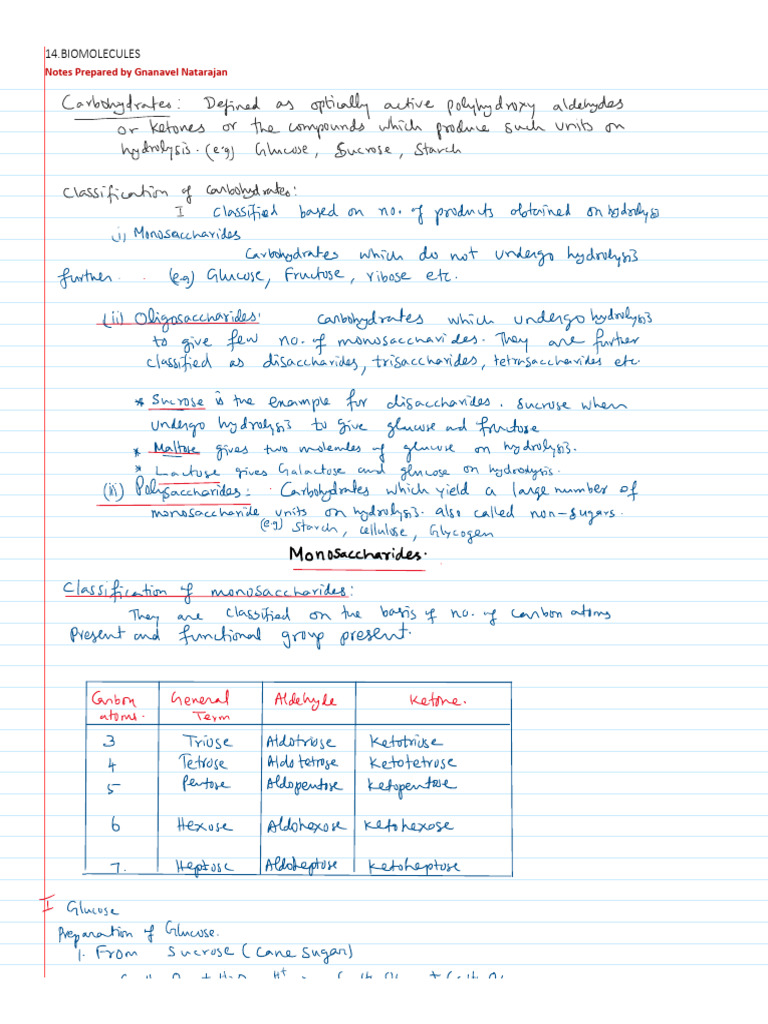 14.BIOMOLECULES
Notes Prepared by Gnanavel Natarajan
Carbohydrates: Defined as optically active polyhydroxy aldehydes
or ketones or the compounds which produce such units on
hydrolysis. (e.g) Glucose, Sucrose, Starch
Classification of Carbohydrates:
I Classified based on no. of products obtained on hydrolysis
(i) Monosaccharides
Carbohydrates which do not undergo hydrolysis
further. (e.g) Glucose, Fructose, ribose etc.
(ii) Oligosaccharides: Carbohydrates which undergo hydrolysis
to give few no. of monosaccharides. They are further
classified as disaccharides, trisaccharides, tetrasaccharides etc.
* Sucrose is the example for disaccharides. Sucrose when
undergo hydrolysis to give glucose and fructose
* Maltose gives two molecules of glucose on hydrolysis.
* Lactose gives Galactose and glucose on hydrolysis.
(iii) Polysaccharides: Carbohydrates which yield a large number of
monosaccharide units on hydrolysis. also called non-sugars.
(e.g) Starch, cellulose, Glycogen
Monosaccharides.
Classification of monosaccharides:
They are classified on the basis of no. of carbon atoms
Present and functional group present.
Carbon atoms. General Term Aldehyde Ketone.
3 Triose Aldotriose Ketotriose
4 Tetrose Aldotetrose Ketotetrose
5 Pentose Aldopentose Ketopentose
6 Hexose Aldohexose Ketohexose
7. Heptose Aldoheptose Ketoheptose
I Glucose
Preparation of Glucose.
1. From Sucrose (Cane Sugar)